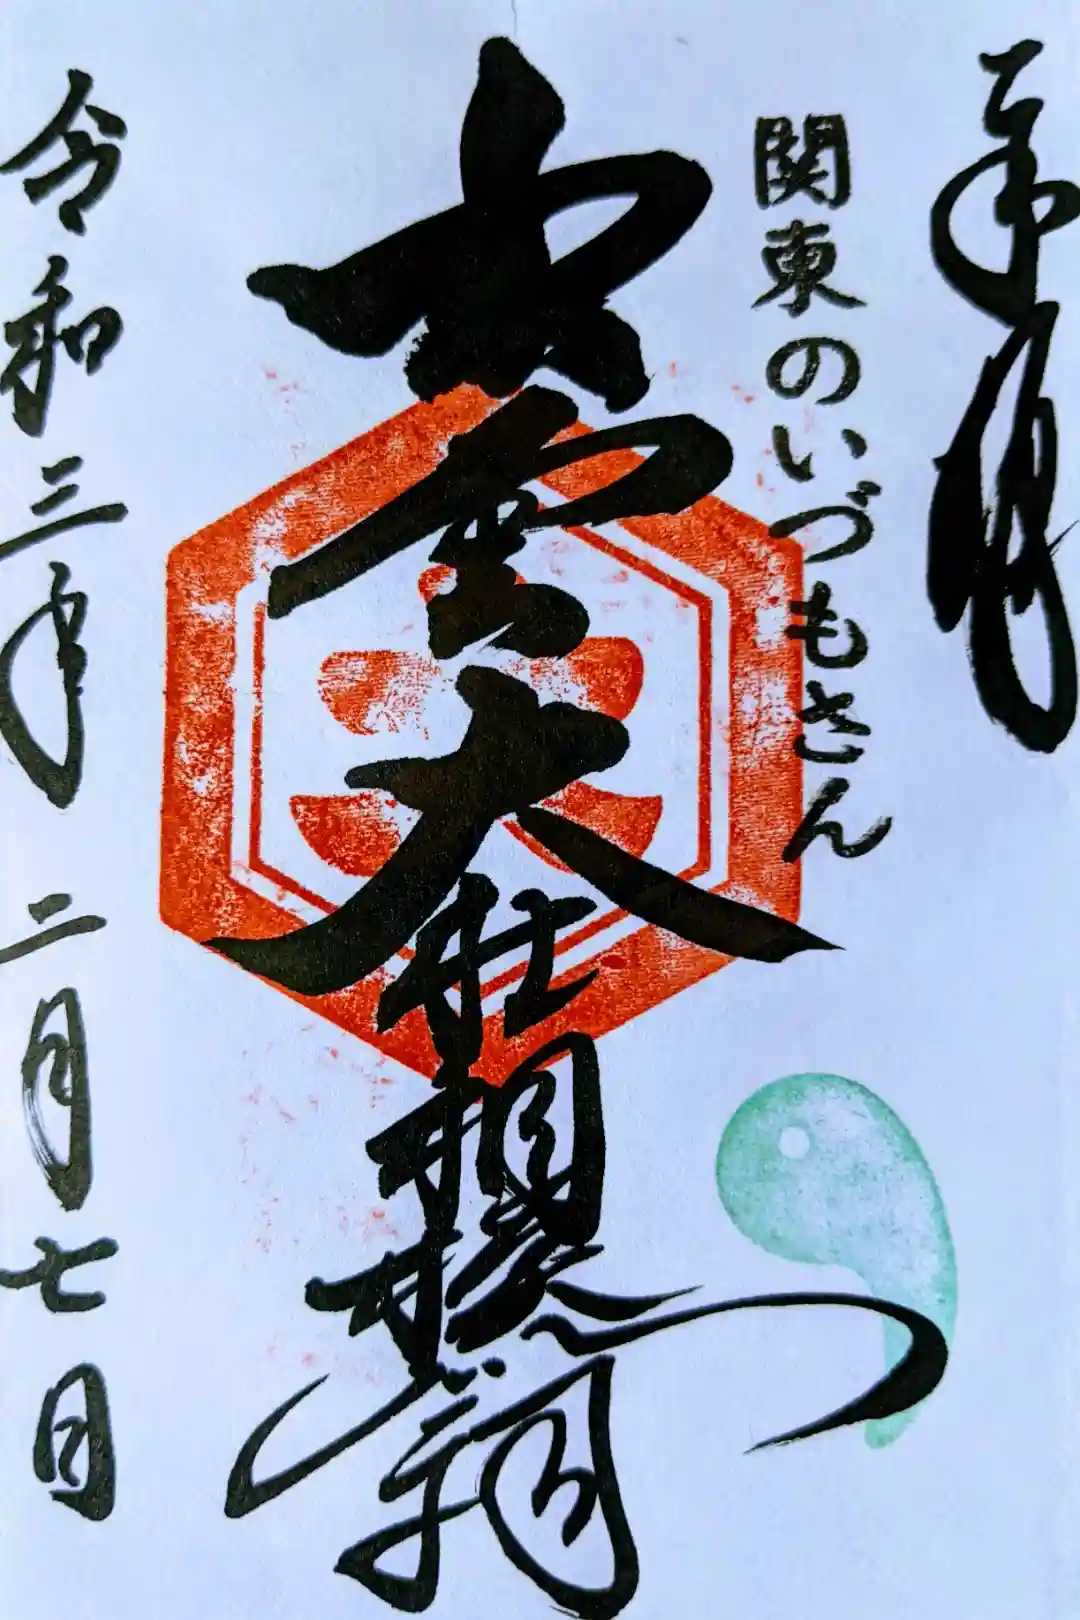 奉拝
関東のいづもさん
出雲大社相模分祠
令和三年二月七日